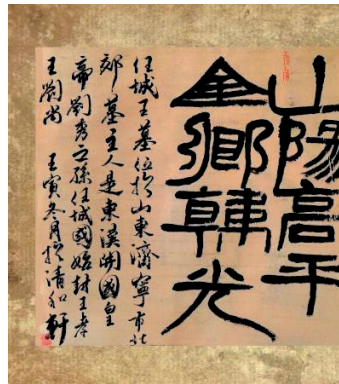 山陽高平
金鄉韓光
任城王墓位於山東濟寧市北
郊墓主人是東漢開國皇
帝劉秀之孫任城國始封王孝
王劉尚 壬寅冬月於清和軒